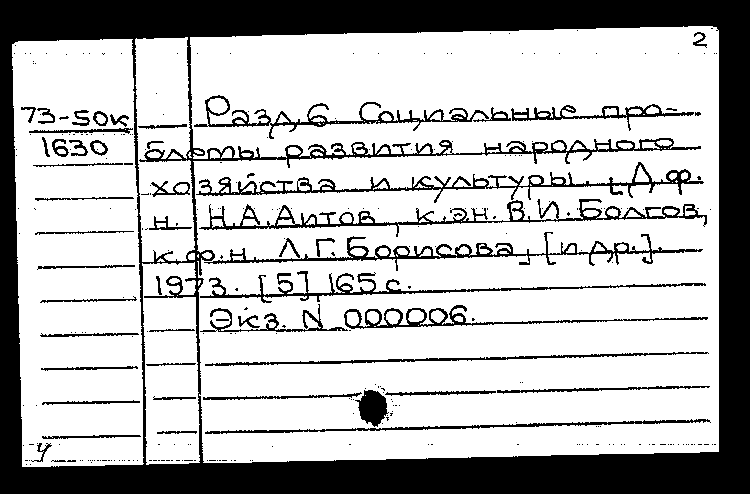 2
73-50к
1630
Разд.6 Социальные про-
блемы развития народного
хозяйства и культуры. [Д.ф.
н. Н.А.Аитов, к.эн. В.И.Болгов,
к.ф.н. Л.Г.Борисова], [и др.].
1973. [5], 165 с.
Экз. N 000006.
у